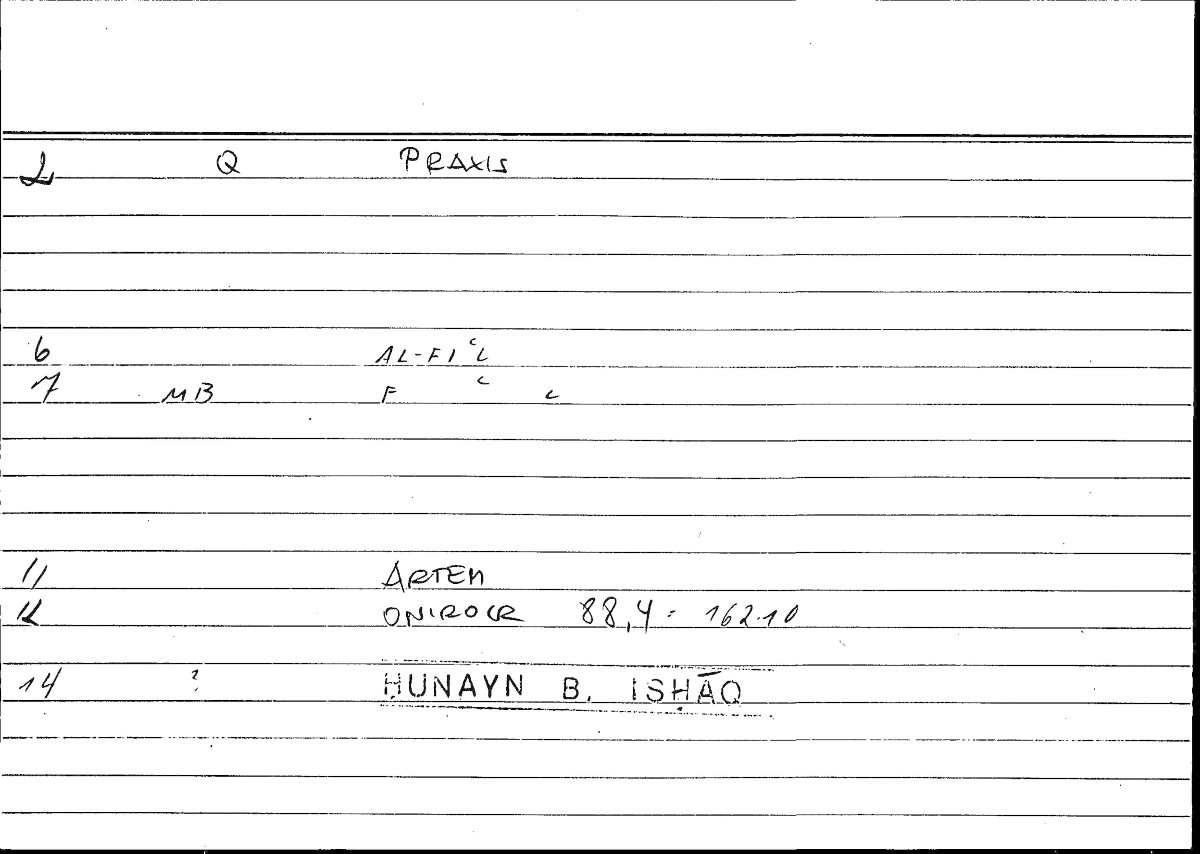 2 Q PRAXIS
6 AL-FIʿL
7 MB F ʿ L
11 ARTEM
12 ONIROCR 88,4 = 162.10
14 ? ḤUNAYN B. ISḤĀQ